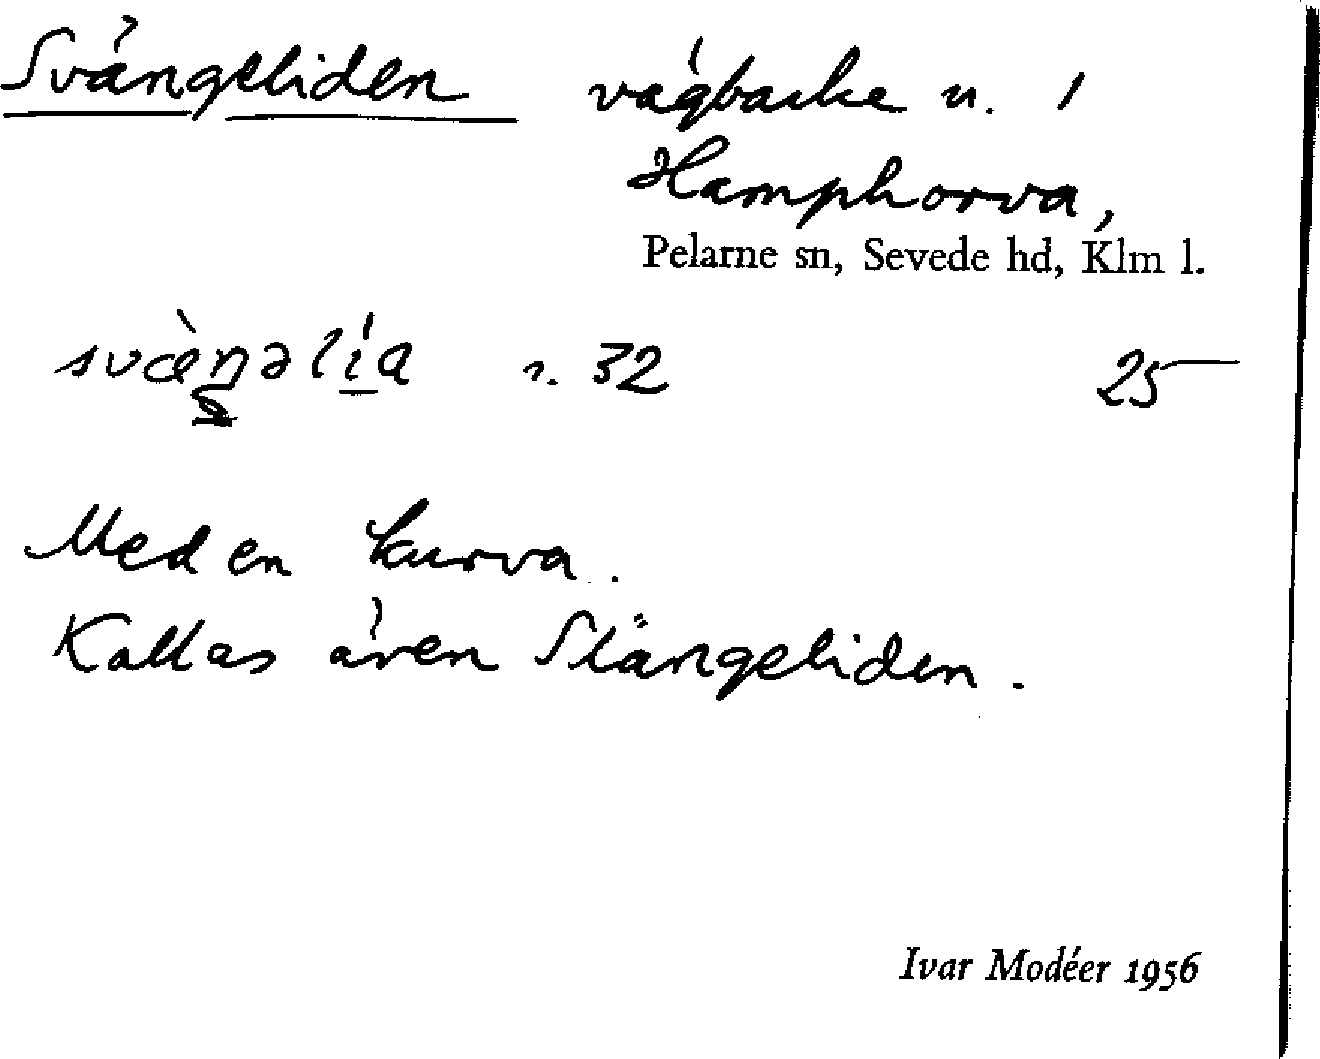 Svängeliden vägbacke u. 1
Hamphorva,
Pelarne sn, Sevede hd, Klm l.
s. 32 25
Med en kurva.
Kallas även Slängeliden.
Ivar Modéer 1956